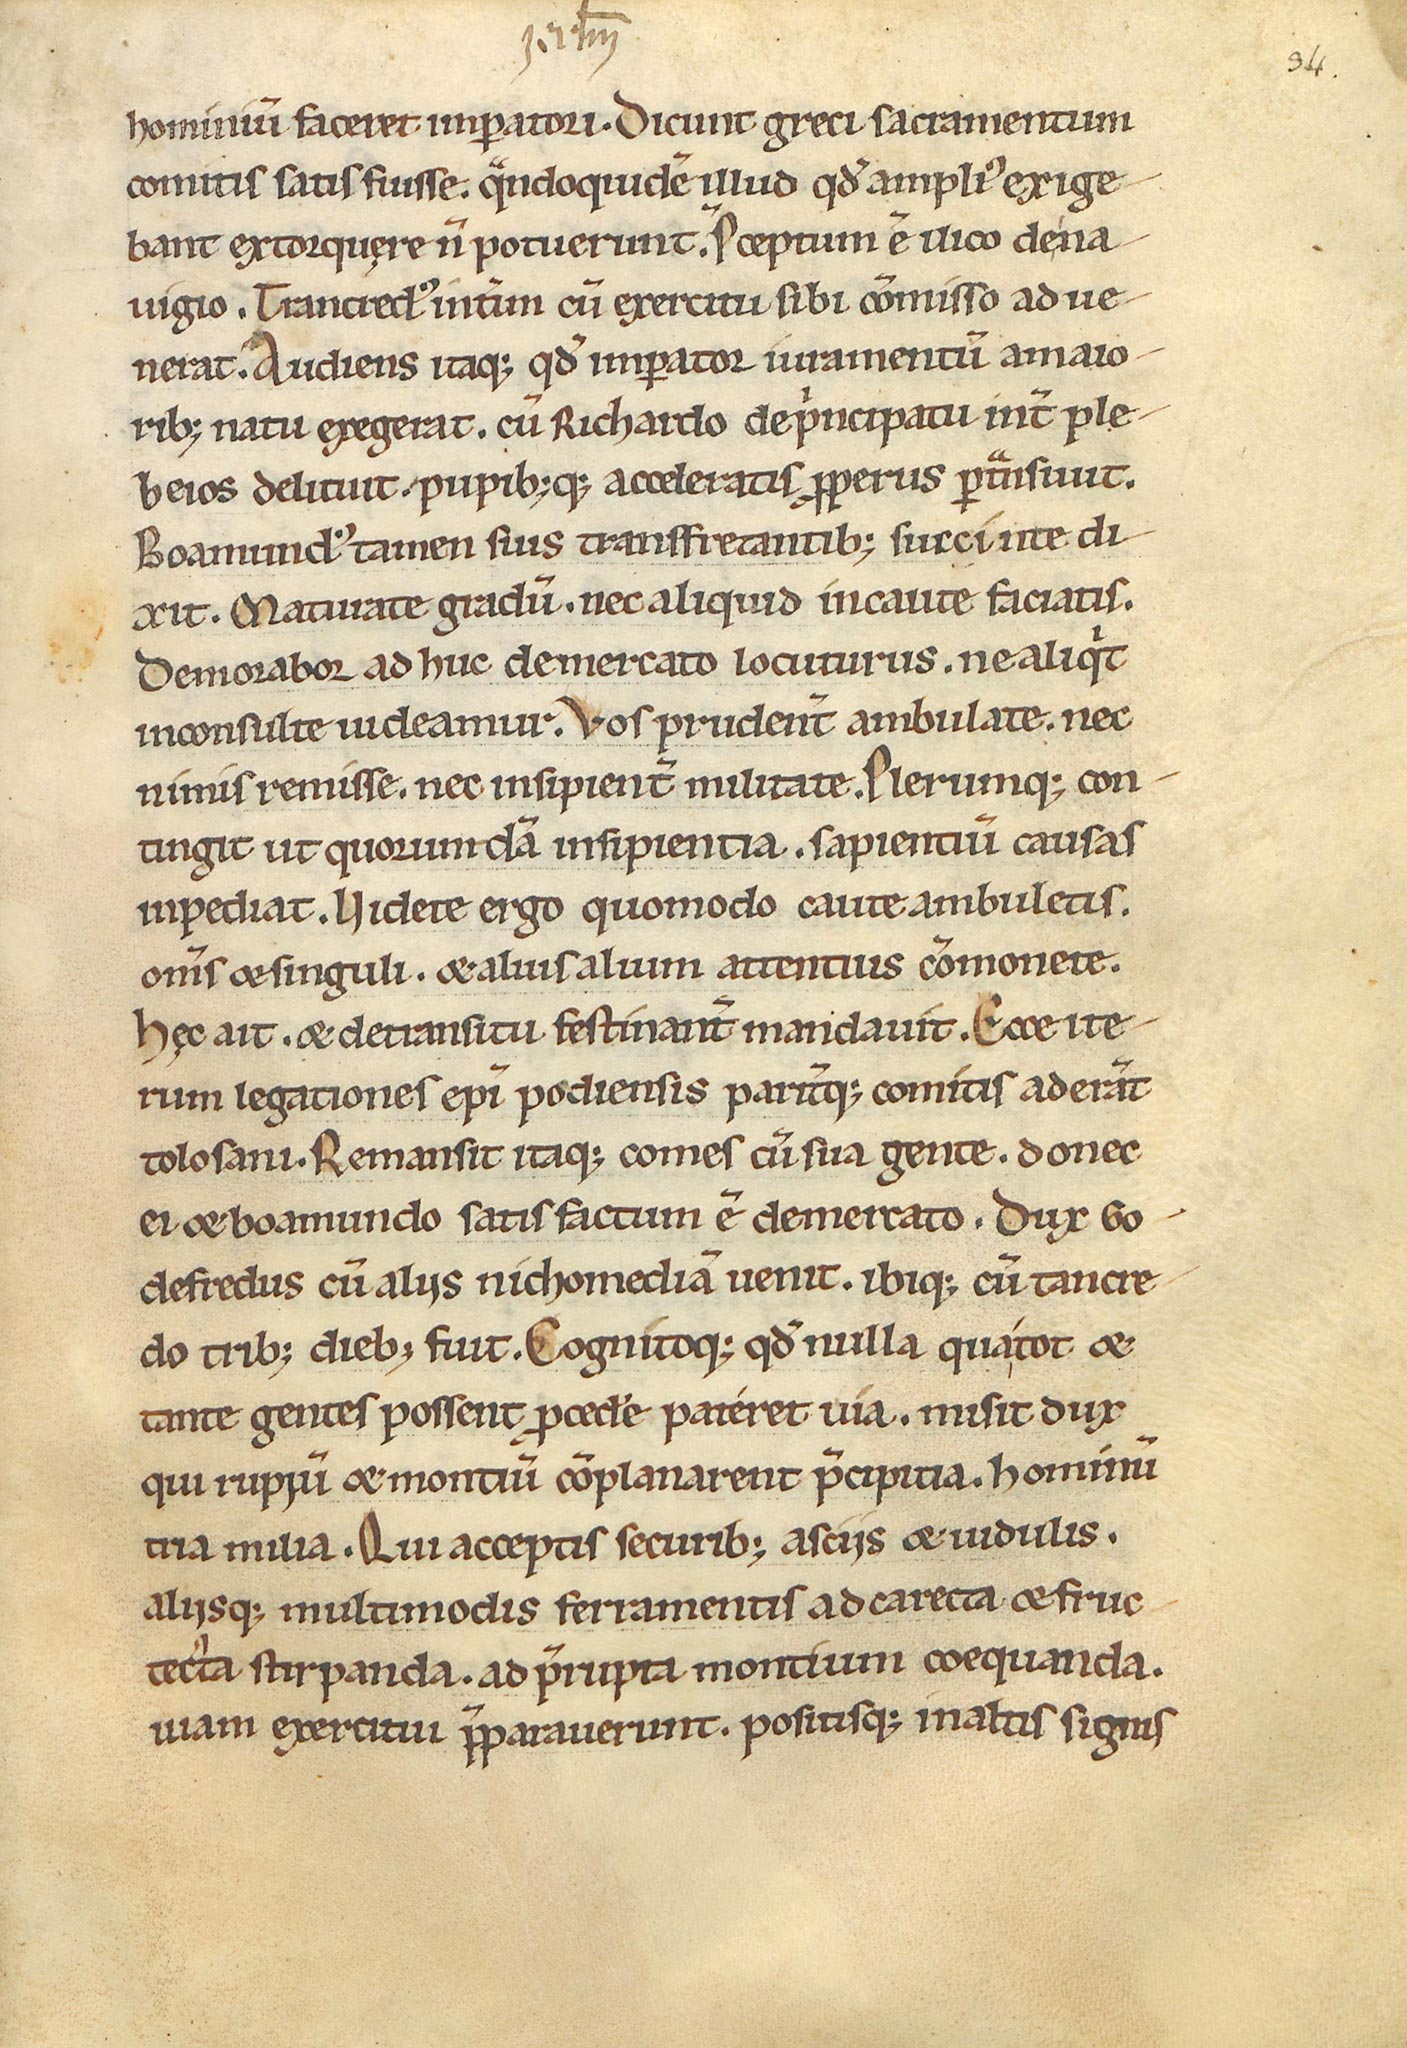 34.
hominiū faceret imꝑatori. Dicunt greci sacramentum
comitis satis fuisse. qͣndoquidē illud qđ ampliꝰ exige-
bant extorquere n̄ potuerunt. P̄ceptum ē ilico de na-
uigio. Tancredꝰ int̄im cū exercitu sibi cōmisso adue-
nerat. Audiens itaq; qđ imꝑator iuramentū a maio-
rib; natu exegerat. cū Richardo de pͥncipatu int̄ ple-
beios delituit. pupib;q; acceleratis ꝓperus ꝑtͣnsiuit.
Boamundꝰ tamen suis transfretantib; succinte di-
xit. Maturate gradū. nec aliquid incaute faciatis.
Demorabor adhuc de mercato locuturus. ne aliqͥt
inconsulte uideamur. Vos prudent̄ ambulate. nec
nimis remisse. nec insipient̄ militate. Plerumq; con-
tingit ut quorumdā insipientia. sapientiū causas
inpediat. Videte ergo quomodo caute ambuletis.
om̄s & singuli. & alius alium attentius cōmonete.
Hęc ait. & de transitu festinant̄ mandauit. Ecce ite-
rum legationes ep̄i podiensis parit̄q; comitis aderāt
tolosani. Remansit itaq; comes cū sua gente. donec
ei & boamundo satisfactum ē de mercato. Dux Go-
defredus cū alijs nichomediā uenit. ibiq; cū tancre-
do trib; dieb; fuit. Cognitoq; qđ nulla qua tot &
tante gentes possent ꝓced̄e pateret uia. misit dux
qui rupiū & montiū cōplanarent p̄cipitia. hominū
tria milia. Qui acceptis securib; asciis & uidulis.
alijsq; multimodis ferramentis ad carecta & fruc-
tecta stirpanda. ad p̄rupta montium coequanda.
uiam exercitui p̄parauerunt. positisq; in altis signis